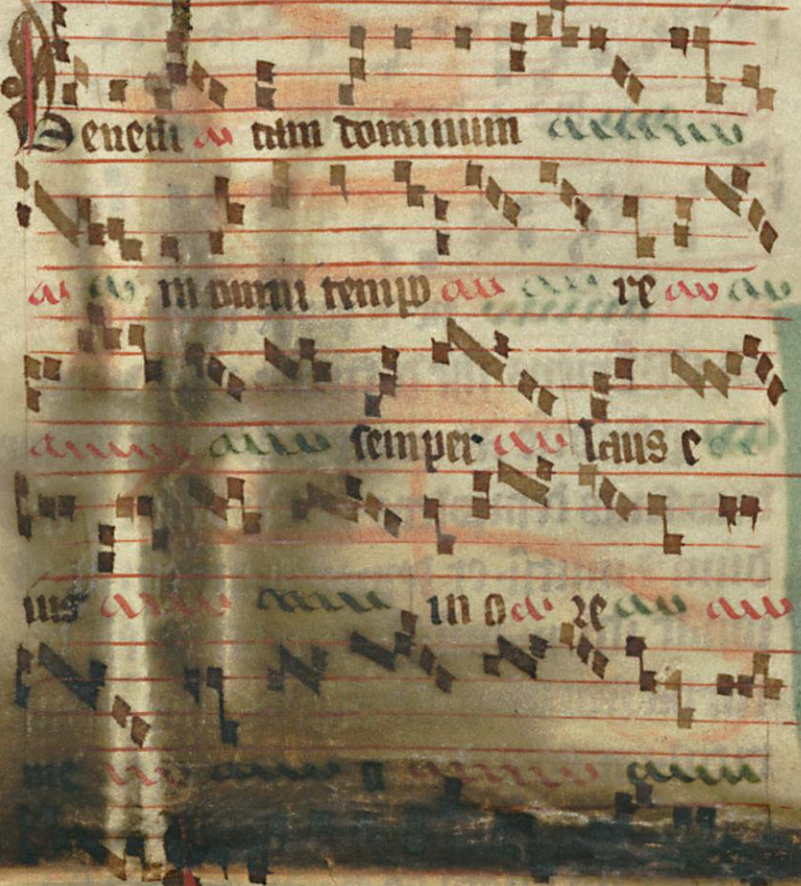 Benedi cam dominum
in omni tempo re
semper laus e
ius in o re
me